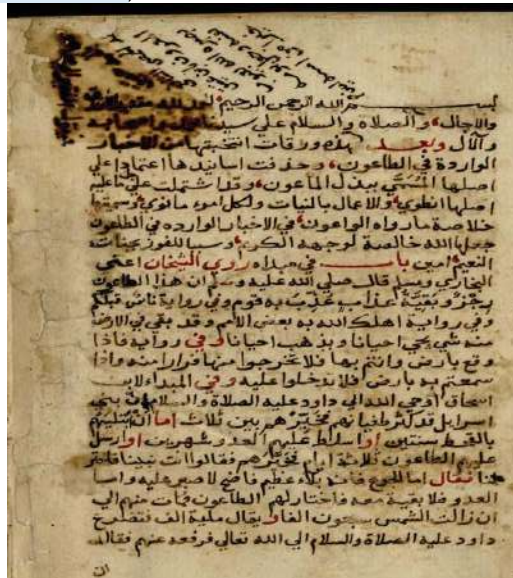 بسم الله الرحمن الرحيم الحمد لله مقدر
والاجال، والصلاة والسلام على سيدنا
والآل وبعد هذه ورقات انتخبتها من الاخبار
الواردة في الطاعون، وحذفت اسانيدها اعتمادا علي
اصلها المسمي ببذل الماعون، وقد اشتملت علي ما عليه
اصلها انطوي، والاعمال بالنيات ولكل امرء ما نوي، وسميتها
خلاصة ما رواه الواعون، في الاخبار الوارده في الطاعون
جعلها الله خالصة لوجهه الكريم وسببا للفوز بجنات
النعيم امين باب في مبداه روي الشيخان اعني
البخاري ومسلم قال صلي الله عليه وسلم ان هذا الطاعون
رجز وبقية عذاب عذب به قوم وفي رواية ناس قبلكم
وفي رواية اهلك الله به بعض الامم وقد بقي في الارض
منه شي يجي احيانا ويذهب احيانا وفي رواية فاذا
وقع بارض وانتم بها فلا تخرجوا منها فرارا منه واذا
سمعتم به بارض فلا تدخلوا عليه وفي المبداء لابن
اسحاق اوحي الله الي داود عليه الصلاة والسلام ان بني
اسرايل قد كثر طغيانهم فخيرهم بين ثلاث اما ان ابتليهم
بالقحط سنتين او اسلط عليهم العدو شهرين او ارسل
عليهم الطاعون ثلاثة ايام فخيرهم فقالوا انت نبينا فاختر
لنا فقال اما الجوع فانه بلاء عظيم فاضح لا صبر عليه واما
العدو فلا بقية معه فاختار لهم الطاعون فمات منهم الي
ان زالت الشمس سبعون الفا ويقال مائة الف فتضرع
داود عليه الصلاة والسلام الي الله تعالي فرفعه عنهم فقال